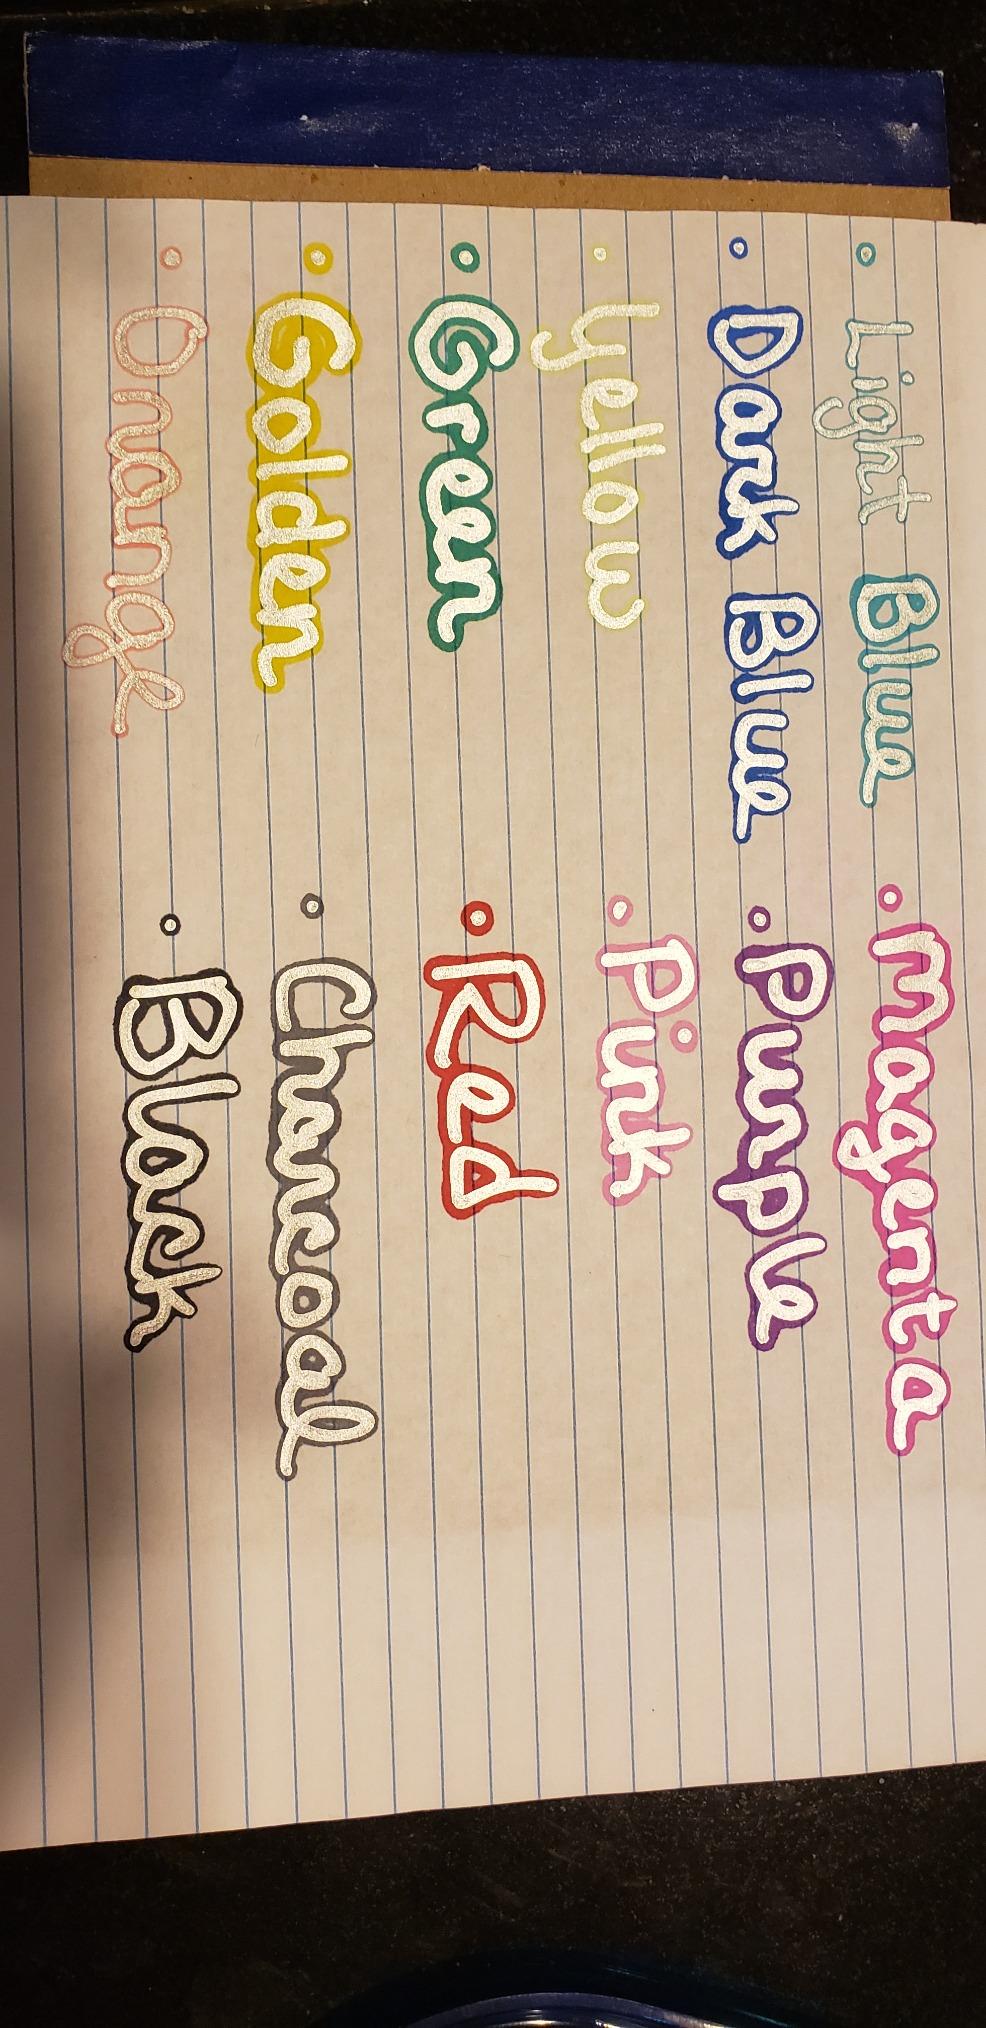 • Light Blue
• Dark Blue
• Yellow
• Green
• Golden
• Orange
• Magenta
• Purple
• Pink
• Red
• Charcoal
• Black